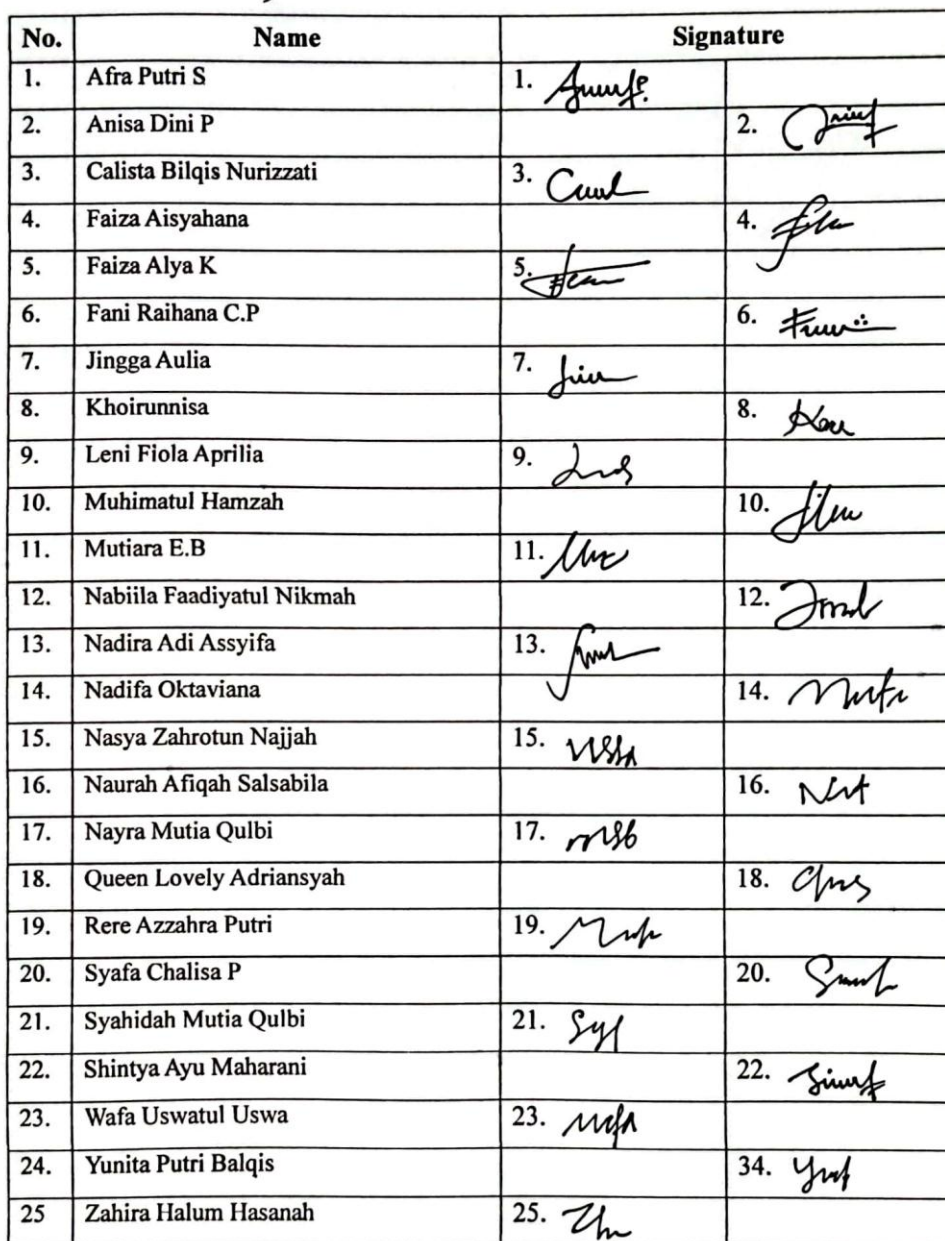 No. Name Signature
1. Afra Putri S 1.
2. Anisa Dini P 2.
3. Calista Bilqis Nurizzati 3.
4. Faiza Aisyahana 4.
5. Faiza Alya K 5.
6. Fani Raihana C.P 6.
7. Jingga Aulia 7.
8. Khoirunnisa 8.
9. Leni Fiola Aprilia 9.
10. Muhimatul Hamzah 10.
11. Mutiara E.B 11.
12. Nabiila Faadiyatul Nikmah 12.
13. Nadira Adi Assyifa 13.
14. Nadifa Oktaviana 14.
15. Nasya Zahrotun Najjah 15.
16. Naurah Afiqah Salsabila 16.
17. Nayra Mutia Qulbi 17.
18. Queen Lovely Adriansyah 18.
19. Rere Azzahra Putri 19.
20. Syafa Chalisa P 20.
21. Syahidah Mutia Qulbi 21.
22. Shintya Ayu Maharani 22.
23. Wafa Uswatul Uswa 23.
24. Yunita Putri Balqis 34.
25 Zahira Halum Hasanah 25.